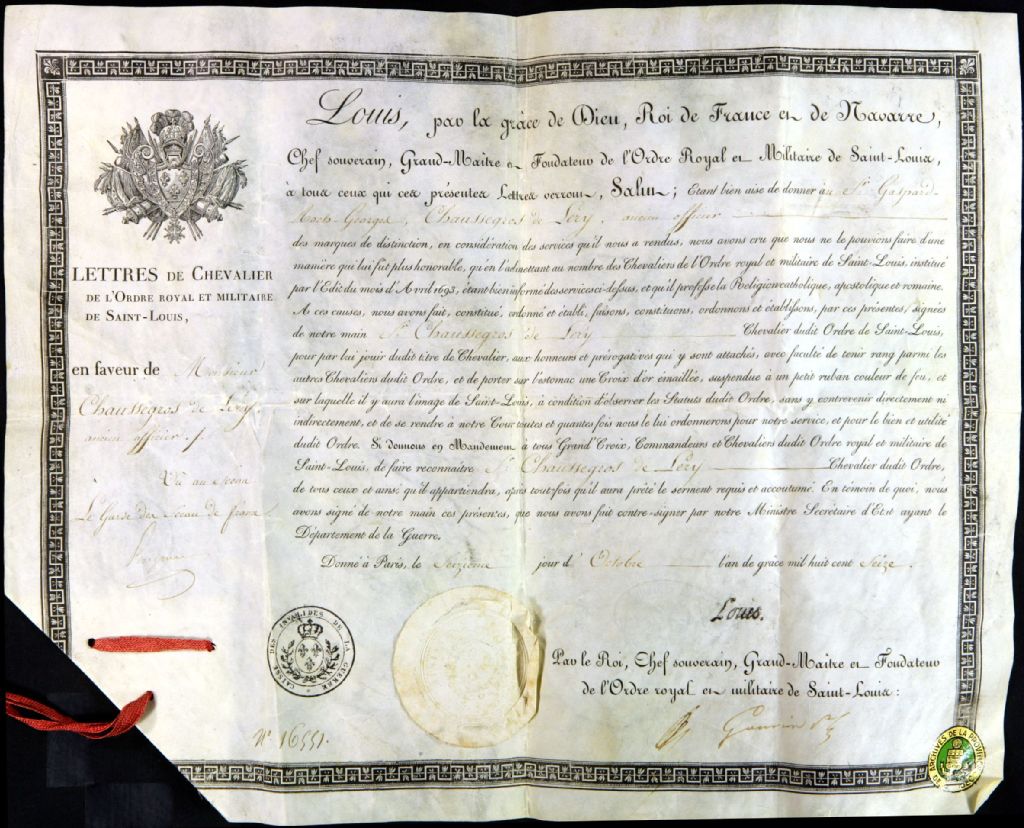 LETTRES DE CHEVALIER
DE L'ORDRE ROYAL ET MILITAIRE
DE SAINT-LOUIS,
en faveur de Monsieur
Chaussegros de Léry,
ancien officier.
Vu au Sceau
Le Garde des Sceaux de france
Louis, par la grâce de Dieu, Roi de France et de Navarre,
Chef souverain, Grand-Maître et Fondateur de l'Ordre Royal et Militaire de Saint-Louis,
à tous ceux qui ces présentes Lettres verront, Salut; Etant bien aise de donner au Sr. Gaspard-
Roch-Georges, Chaussegros de Léry, ancien officier
des marques de distinction, en considération des services qu'il nous a rendus, nous avons cru que nous ne le pouvions faire d'une
manière qui lui fut plus honorable, qu'en l'admettant au nombre des Chevaliers de l'Ordre royal et militaire de Saint-Louis, institué
par l'Edit du mois d'Avril 1693, étant bien informé des services ci-dessus, et qu'il professe la Religion catholique, apostolique et romaine.
A ces causes, nous avons fait, constitué, ordonné et établi, faisons, constituons, ordonnons et établissons, par ces présentes, signées
de notre main Sr. Chaussegros de Léry Chevalier dudit Ordre de Saint-Louis,
pour par lui jouir dudit titre de Chevalier, aux honneurs et prérogatives qui y sont attachés, avec faculté de tenir rang parmi les
autres Chevaliers dudit Ordre, et de porter sur l'estomac une Croix d'or émaillée, suspendue à un petit ruban couleur de feu, et
sur laquelle il y aura l'image de Saint-Louis, à condition d'observer les Statuts dudit Ordre, sans y contrevenir directement ni
indirectement, et de se rendre à notre Cour toutes et quantes fois nous le lui ordonnerons pour notre service, et pour le bien et utilité
dudit Ordre. Si donnons en Mandement à tous Grand'Croix, Commandeurs et Chevaliers dudit Ordre royal et militaire de
Saint-Louis, de faire reconnaitre Sr. Chaussegros de Léry Chevalier dudit Ordre,
de tous ceux et ainsi qu'il appartiendra, après toutefois qu'il aura prêté le serment requis et accoutumé. En témoin de quoi, nous
avons signé de notre main ces présentes, que nous avons fait contre-signer par notre Ministre Secrétaire d'Etat ayant le
Département de la Guerre.
Donné à Paris, le Seizième jour d'Octobre l'an de grâce mil huit cent Seize.
Louis.
Par le Roi, Chef souverain, Grand-Maître et Fondateur
de l'Ordre royal et militaire de Saint-Louis:
CAISSE DES INVALIDES DE LA GUERRE
No. 16551.
ARCHIVES DE LA PROVINCE